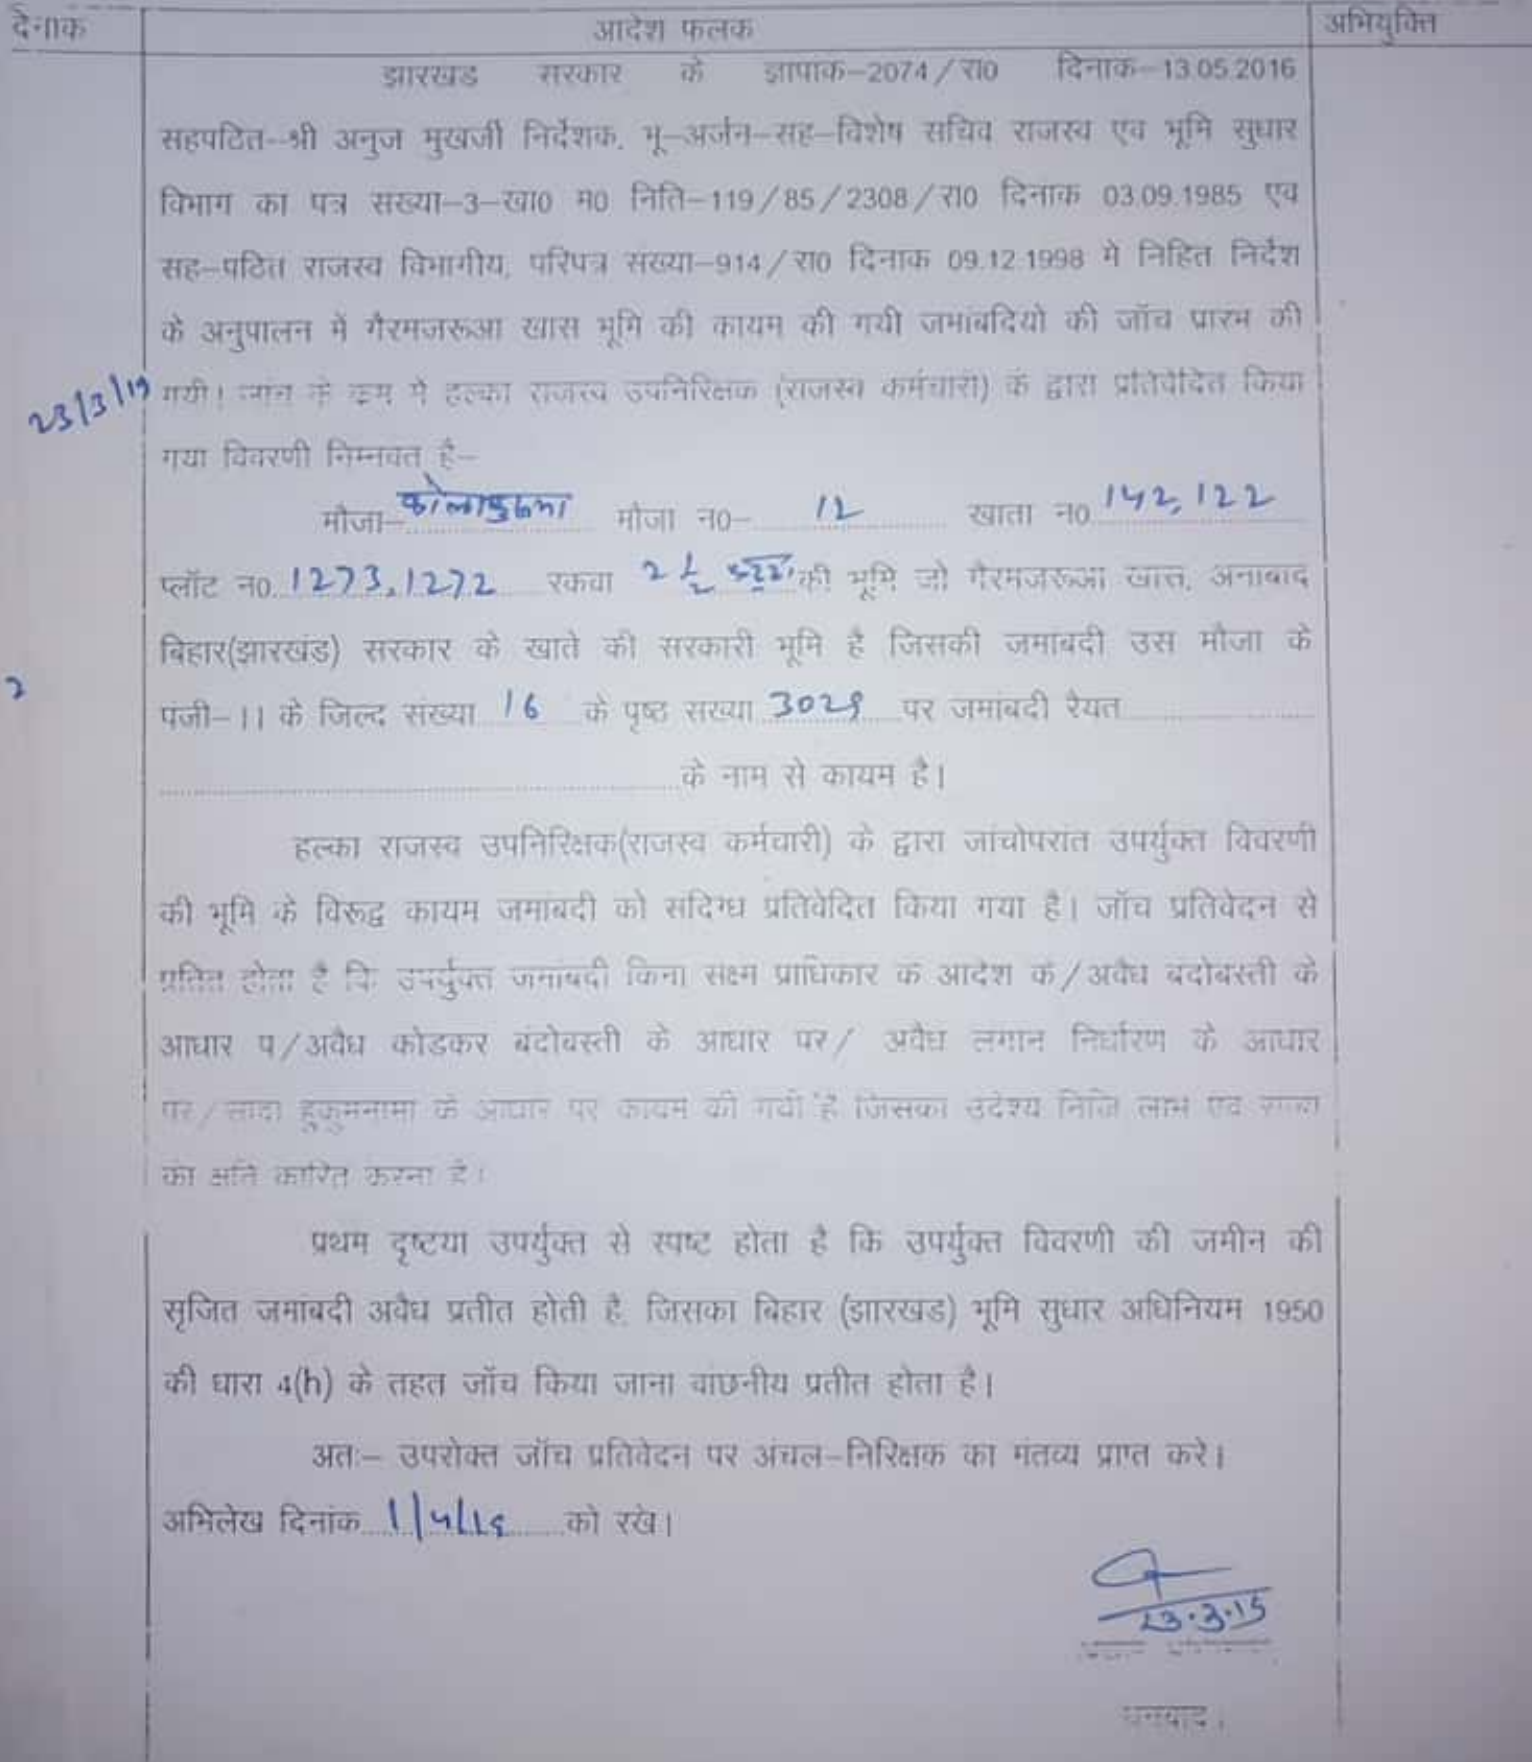 देनाक आदेश फलक अभियुक्ति
झारखड सरकार के ज्ञापाक-2074/रा0 दिनाक-13.05.2016
सहपठित-श्री अनुज मुखर्जी निर्देशक, भू-अर्जन-सह-विशेष सचिव राजस्व एव भूमि सुधार
विभाग का पत्र सख्या-3-खा0 म0 निति-119/85/2308/रा0 दिनाक 03.09.1985 एव
सह-पठित राजस्व विभागीय, परिपत्र संख्या-914/रा0 दिनाक 09.12.1998 मे निहित निर्देश
के अनुपालन में गैरमजरूआ खास भूमि की कायम की गयी जमांबदियो की जॉच प्रारभ की
23/3/19 गयी। जांच के क्रम मे हल्का राजस्व उपनिरिक्षक (राजस्व कर्मचारी) के द्वारा प्रतिवेदित किया
गया विवरणी निम्नवत है-
मौजा- मौजा न0- 12 खाता न0 142, 122
प्लॉट न0. 1273, 1272 रकवा 2 1/2 की भूमि जो गैरमजरूआ खास, अनाबाद
बिहार(झारखंड) सरकार के खाते की सरकारी भूमि है जिसकी जमांबदी उस मौजा के
2 पंजी-11 के जिल्द संख्या 16 के पृष्ठ सख्या 3029 पर जमांबदी रैयत
के नाम से कायम है।
हल्का राजस्व उपनिरिक्षक(राजस्व कर्मचारी) के द्वारा जांचोपरांत उपर्युक्त विवरणी
की भूमि के विरूद्व कायम जमांबदी को संदिग्ध प्रतिवेदित किया गया है। जॉच प्रतिवेदन से
प्रतित होता है कि उपर्युक्त जमांबदी किना सक्ष्म प्राधिकार के आदेश के/अवैध बदोबस्ती के
आधार प/अवैध कोडकर बंदोबस्ती के आधार पर/ अवैध लगान निर्धारण के आधार
पर/सादा हूकुमनामा के आधार पर कायम की गयी है जिसका उदेश्य निजि लाभ एव राज्य
को क्षति कारित करना है।
प्रथम दृष्टया उपर्युक्त से स्पष्ट होता है कि उपर्युक्त विवरणी की जमीन की
सृजित जमांबदी अवैध प्रतीत होती है, जिसका बिहार (झारखड) भूमि सुधार अधिनियम 1950
की धारा 4(h) के तहत जॉच किया जाना वांछनीय प्रतीत होता है।
अतः- उपरोक्त जॉच प्रतिवेदन पर अंचल-निरिक्षक का मंतव्य प्राप्त करे।
अभिलेख दिनांक को रखे।
धनबाद।